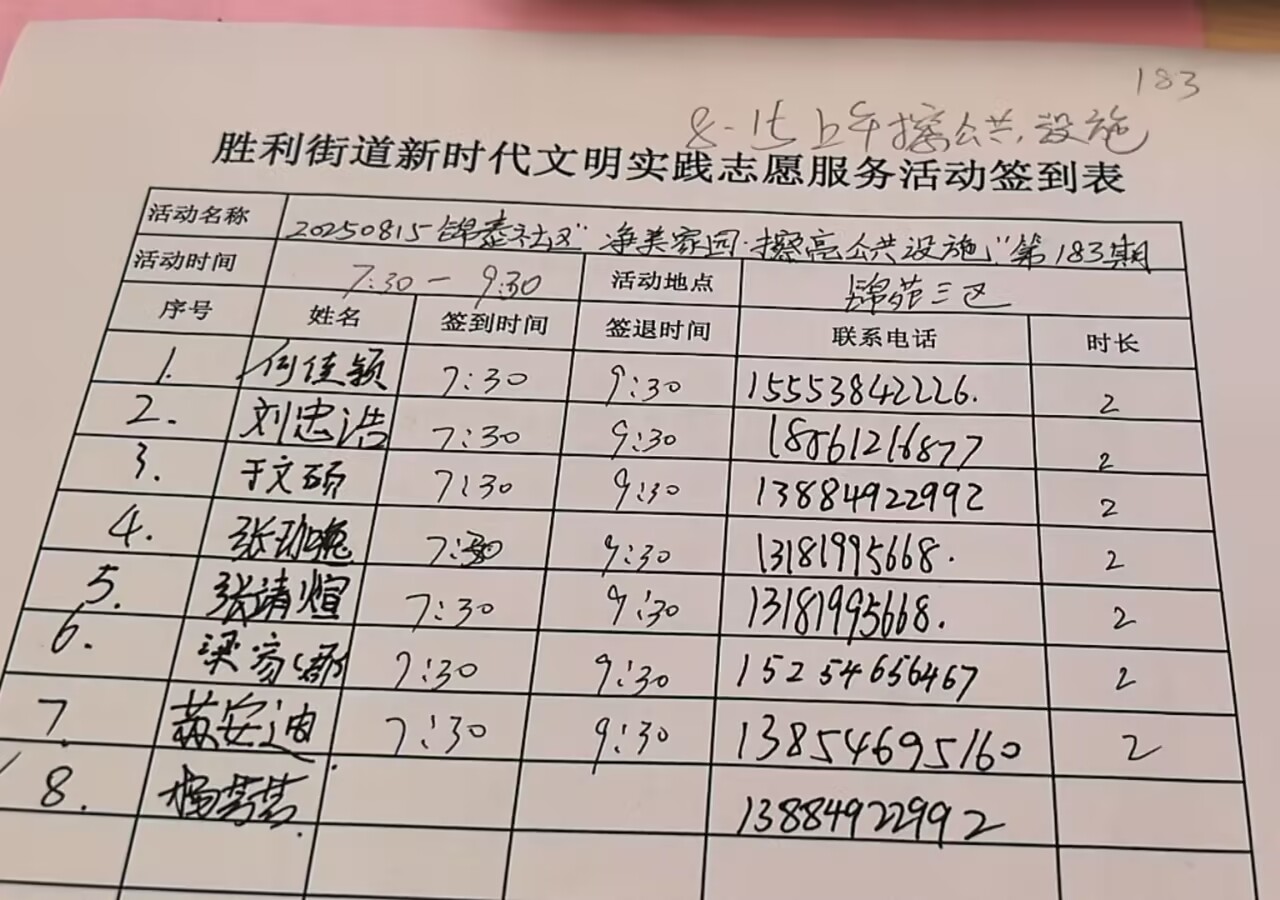 183
8-15上午擦公共设施
胜利街道新时代文明实践志愿服务活动签到表
活动名称 20250815锦泰社区"净美家园·擦亮公共设施"第183期
活动时间 7:30-9:30 活动地点 锦苑三区
序号 姓名 签到时间 签退时间 联系电话 时长
1. 何佳颖 7:30 9:30 15553842226. 2
2. 刘忠浩 7:30 9:30 18861216877 2
3. 于文硕 7:30 9:30 13884922992 2
4. 张 7:30 9:30 13181995668. 2
5. 张靖煊 7:30 9:30 13181995668. 2
6. 梁家 7:30 9:30 15254656467 2
7. 苏安迪 7:30 9:30 13854695160 2
8. 杨芸芸 13884922992